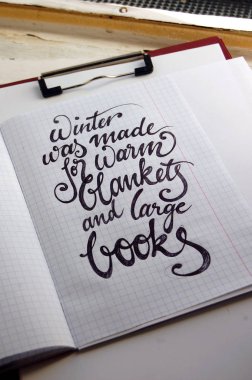 winter
was made
for warm
blankets
and large
books